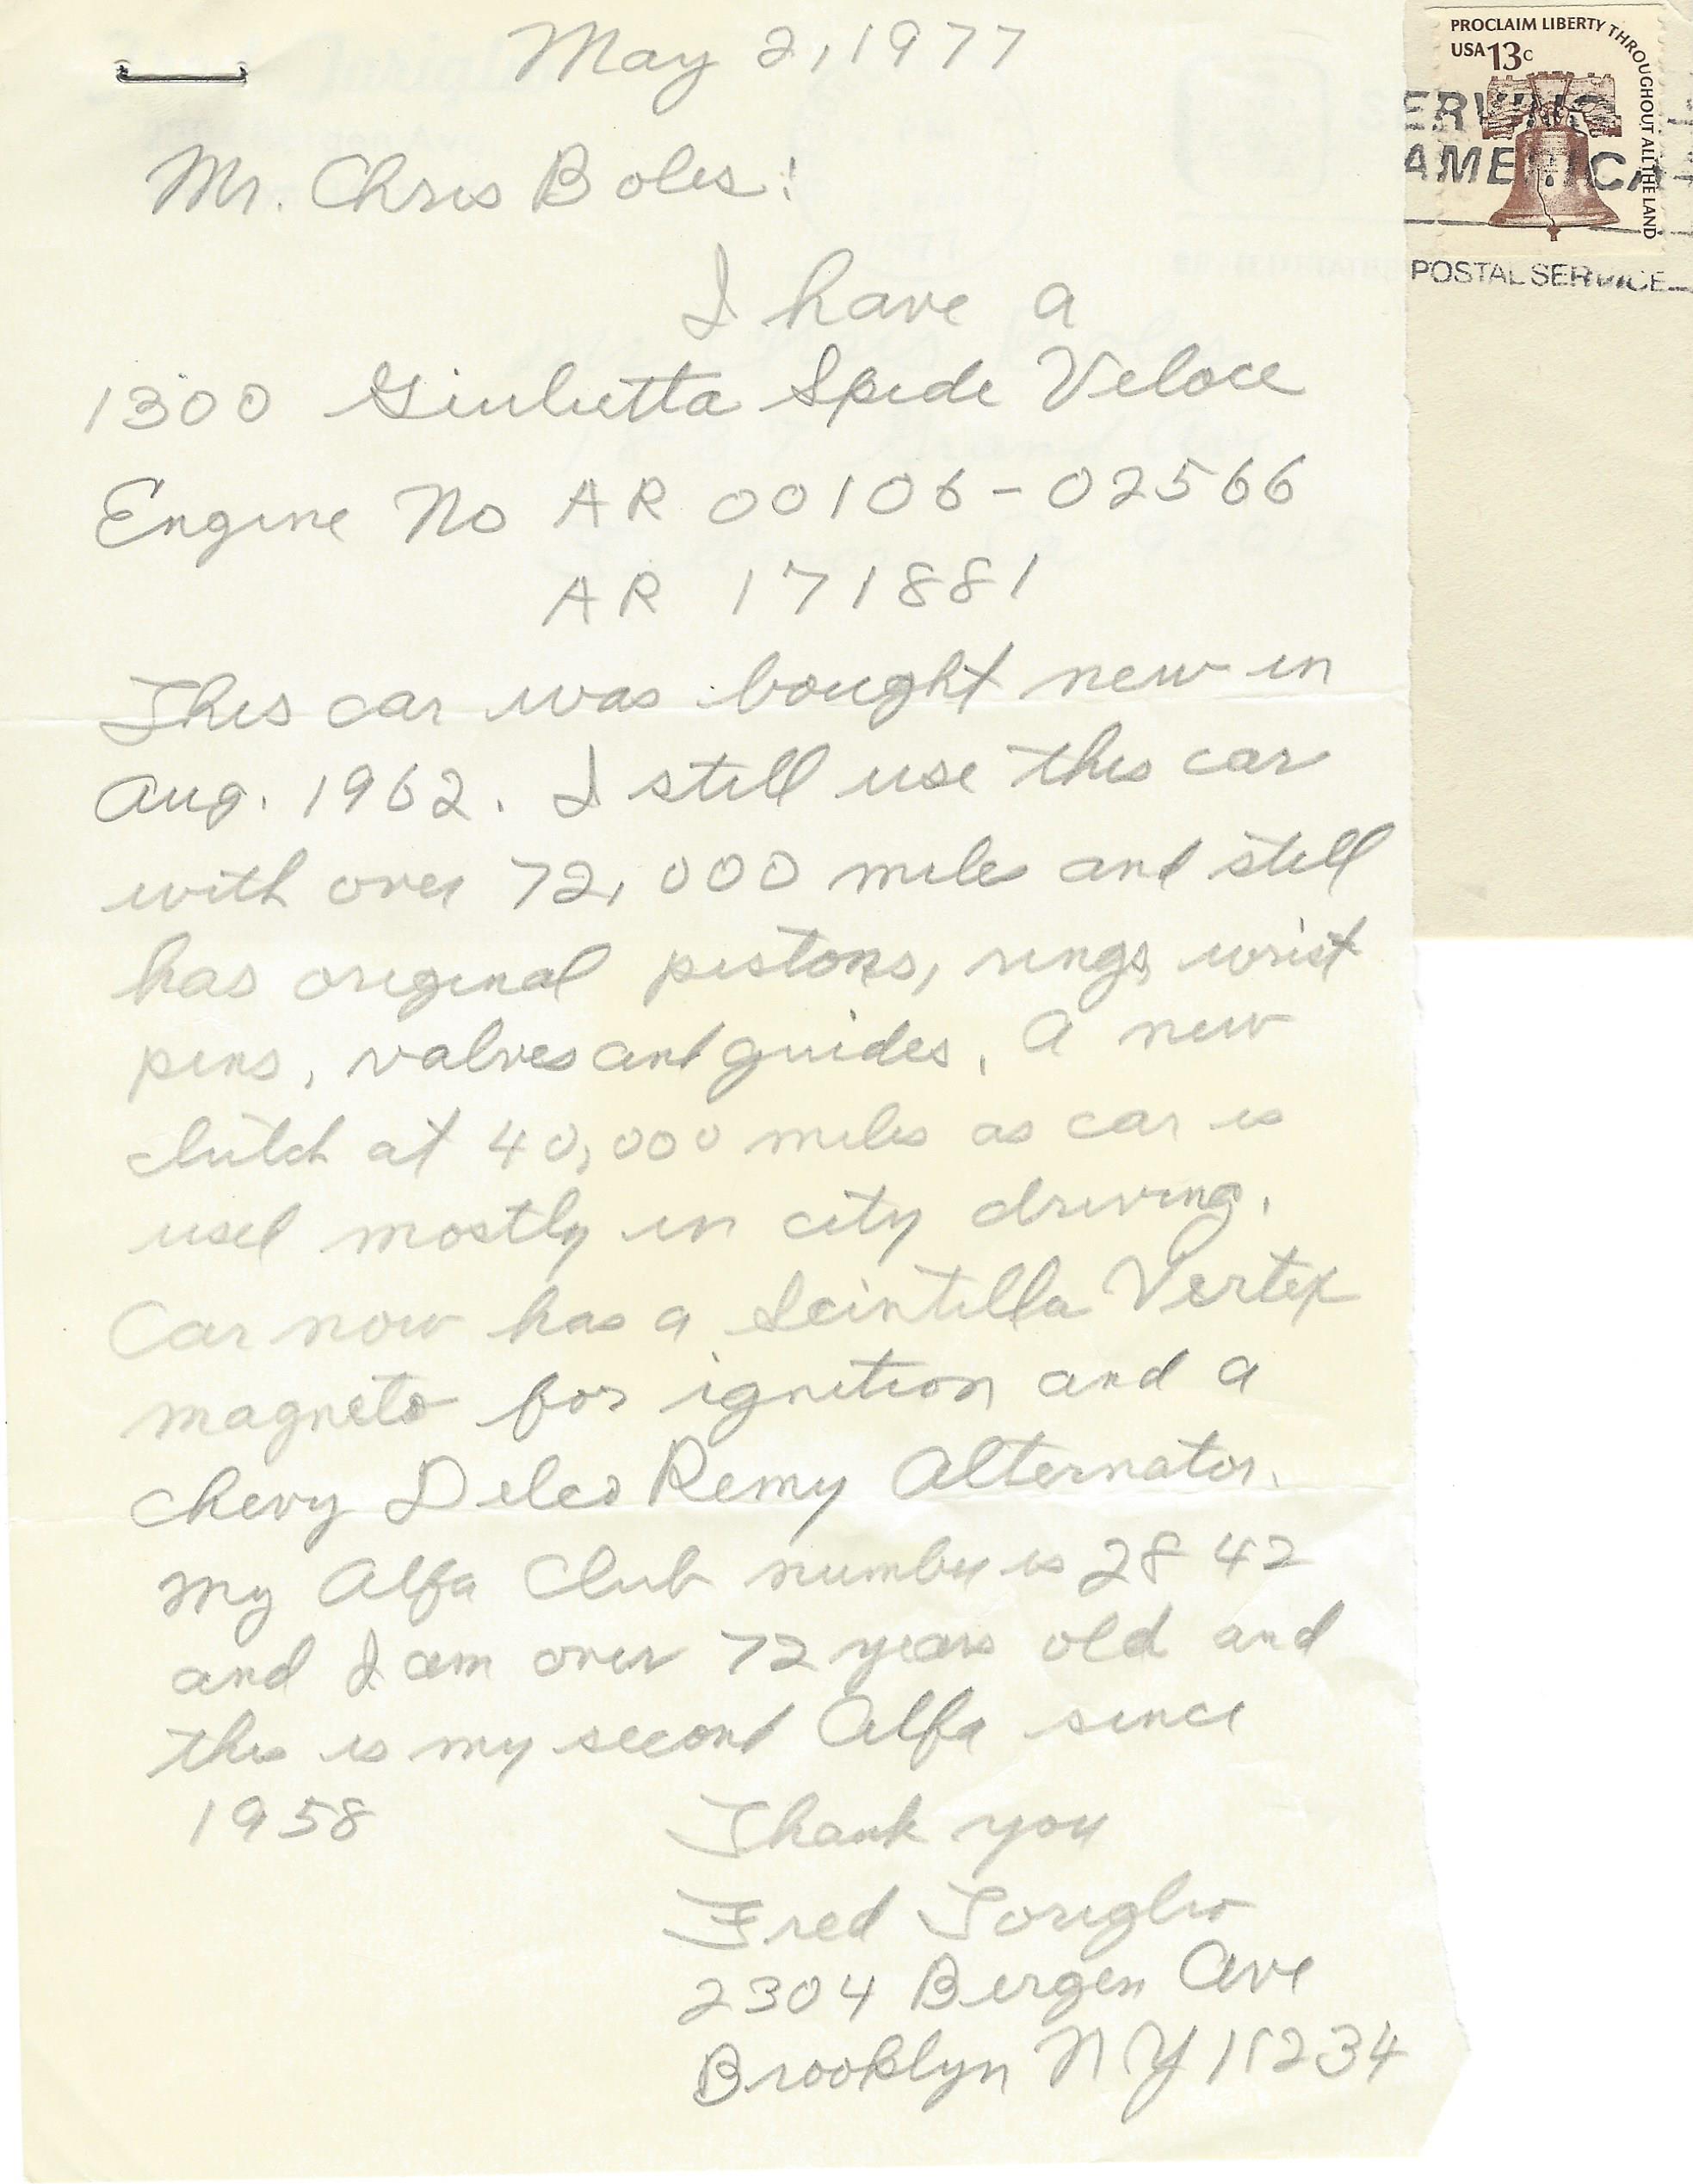 May 2, 1977
Mr. Chris Boles:
I have a
1300 Giulietta Spide Veloce
Engine No AR 00106-02566
AR 171881
This car was bought new in
Aug. 1962. I still use this car
with over 72,000 miles and still
has original pistons, rings, wrist
pins, valves and guides. A new
clutch at 40,000 miles as car is
used mostly in city driving.
Car now has a Scintilla Vertex
magneto for ignition and a
Chevy Delco Remy Alternator.
My Alfa Club number is 2842
and I am over 72 years old and
this is my second Alfa since
1958
Thank you
Fred
2304 Bergen Ave
Brooklyn NY 11234
PROCLAIM LIBERTY THROUGHOUT ALL THE LAND
USA 13c
ERVING
AMERICA
POSTAL SERVICE